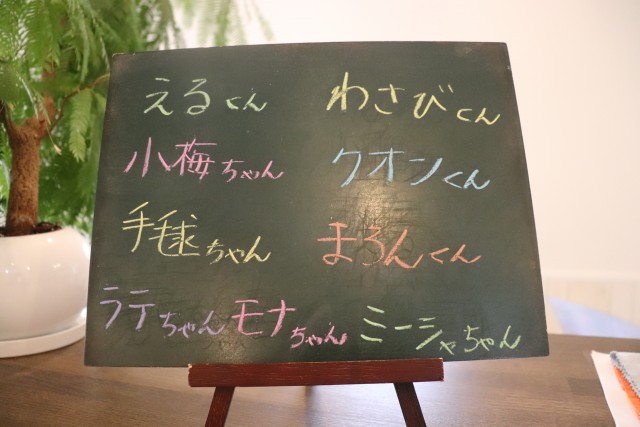 えるくん わさびくん
小梅ちゃん クオンくん
手毬ちゃん まろんくん
ラテちゃん モナちゃん ミーシャちゃん